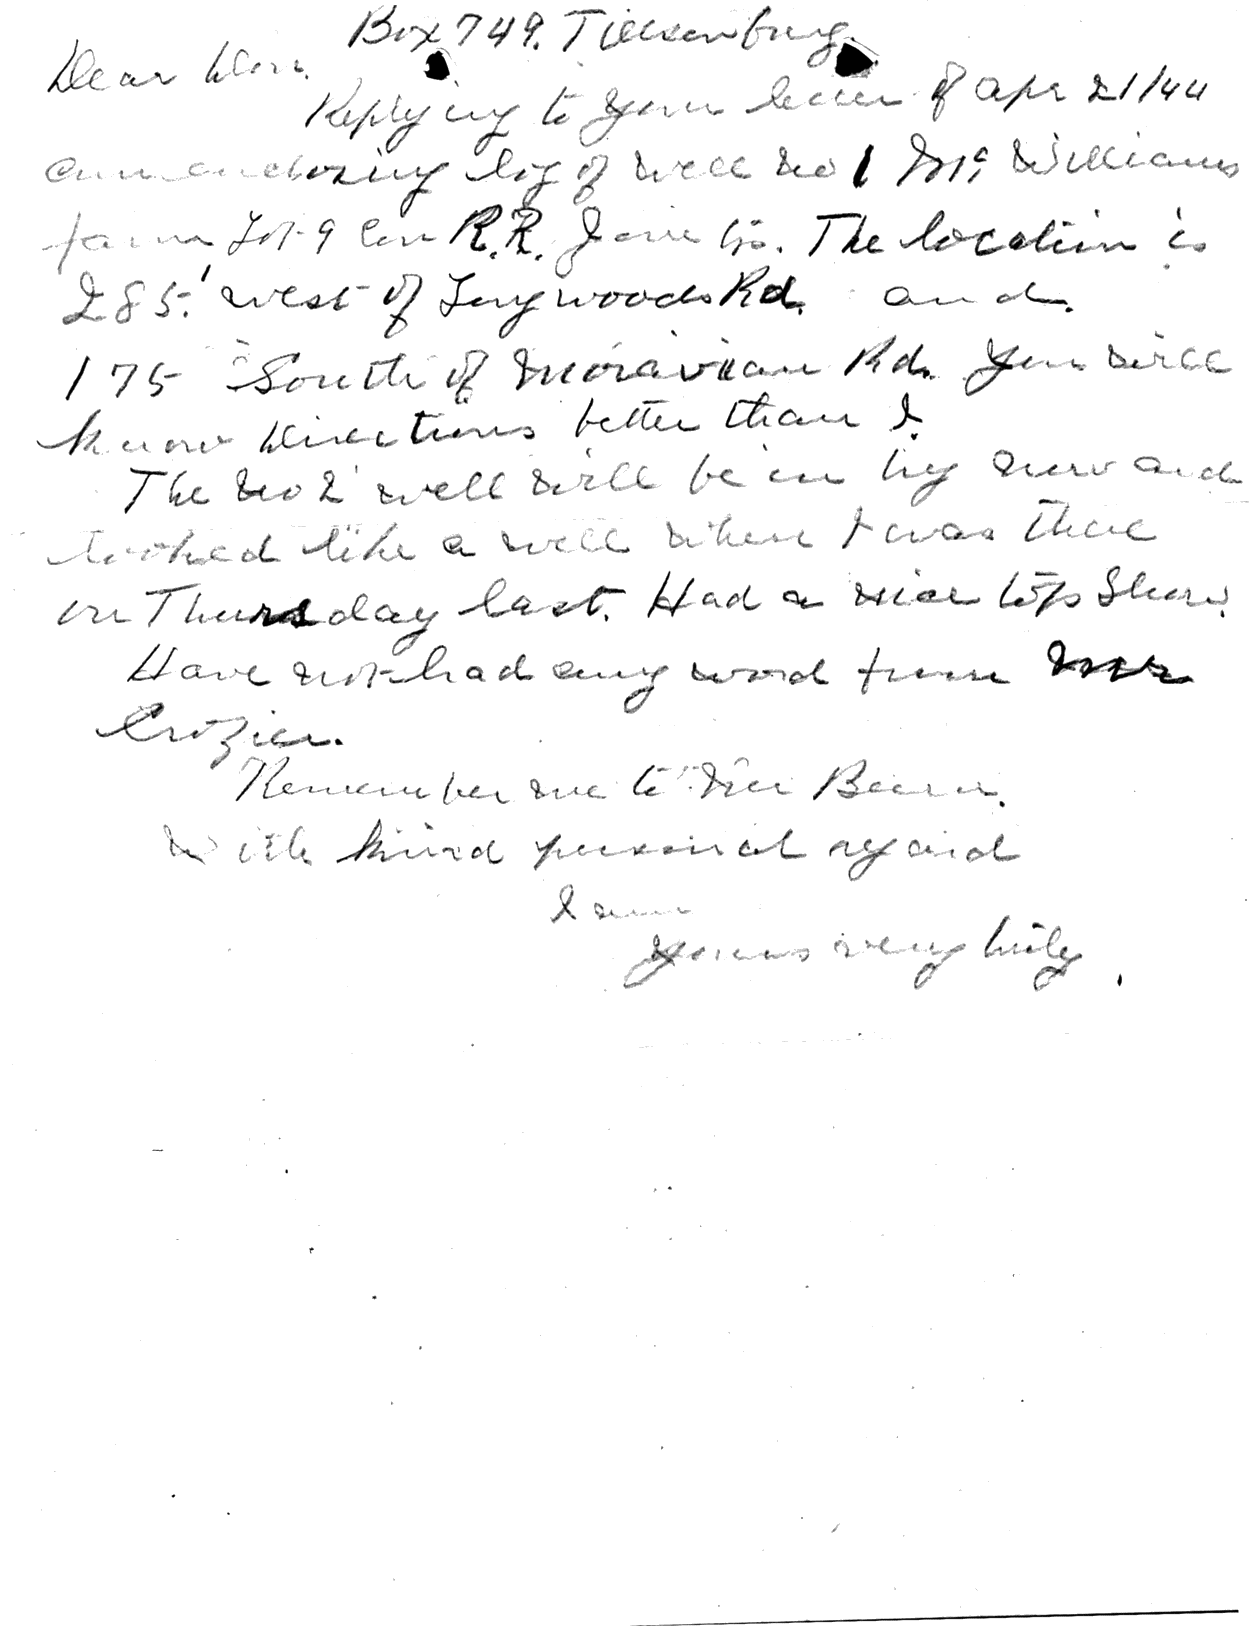 Box 749. Tillsonburg.
Dear Don.
Replying to your letter of Apr 21/44
am enclosing log of well No 1 Mc Williams
farm Lot 9 Con R.R. Zone Tp. The location is
285' west of Longwoods Rd. and
175 South of Moravian Rd. You will
know directions better than I.
The No 2 well will be in by now and
looked like a well when I was there
on Thursday last. Had a nice top show.
Have not had any word from Mr
Crozier.
Remember me to Beern.
With kind personal regard
I am
yours very truly